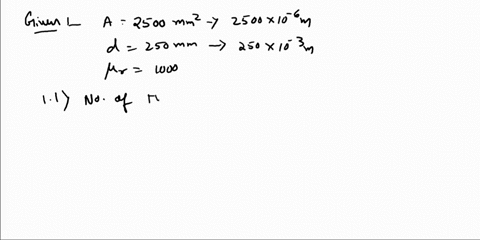 Given A = 2500 mm² → 2500 × 10⁻⁶ m
d = 250 mm → 250 × 10⁻³ m
μr = 1000
1.1) No. of